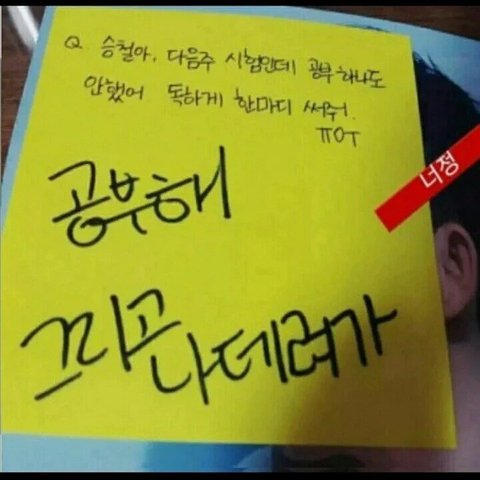 Q. 승철아, 다음주 시험인데 공부 하나도
안했어 독하게 한마디 써줘.
ㅠㅇㅜ
너정
공부해
끄리고
나데려가